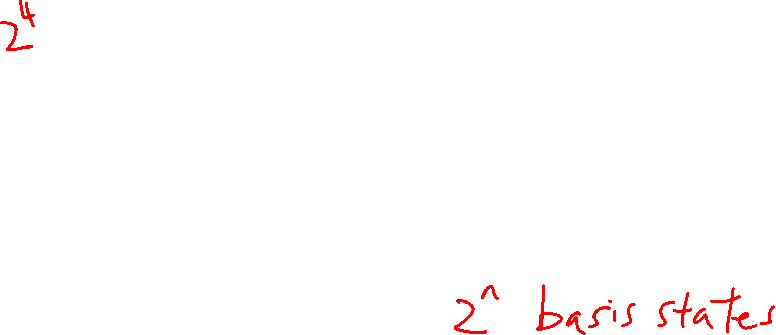 2^4
2^n basis states